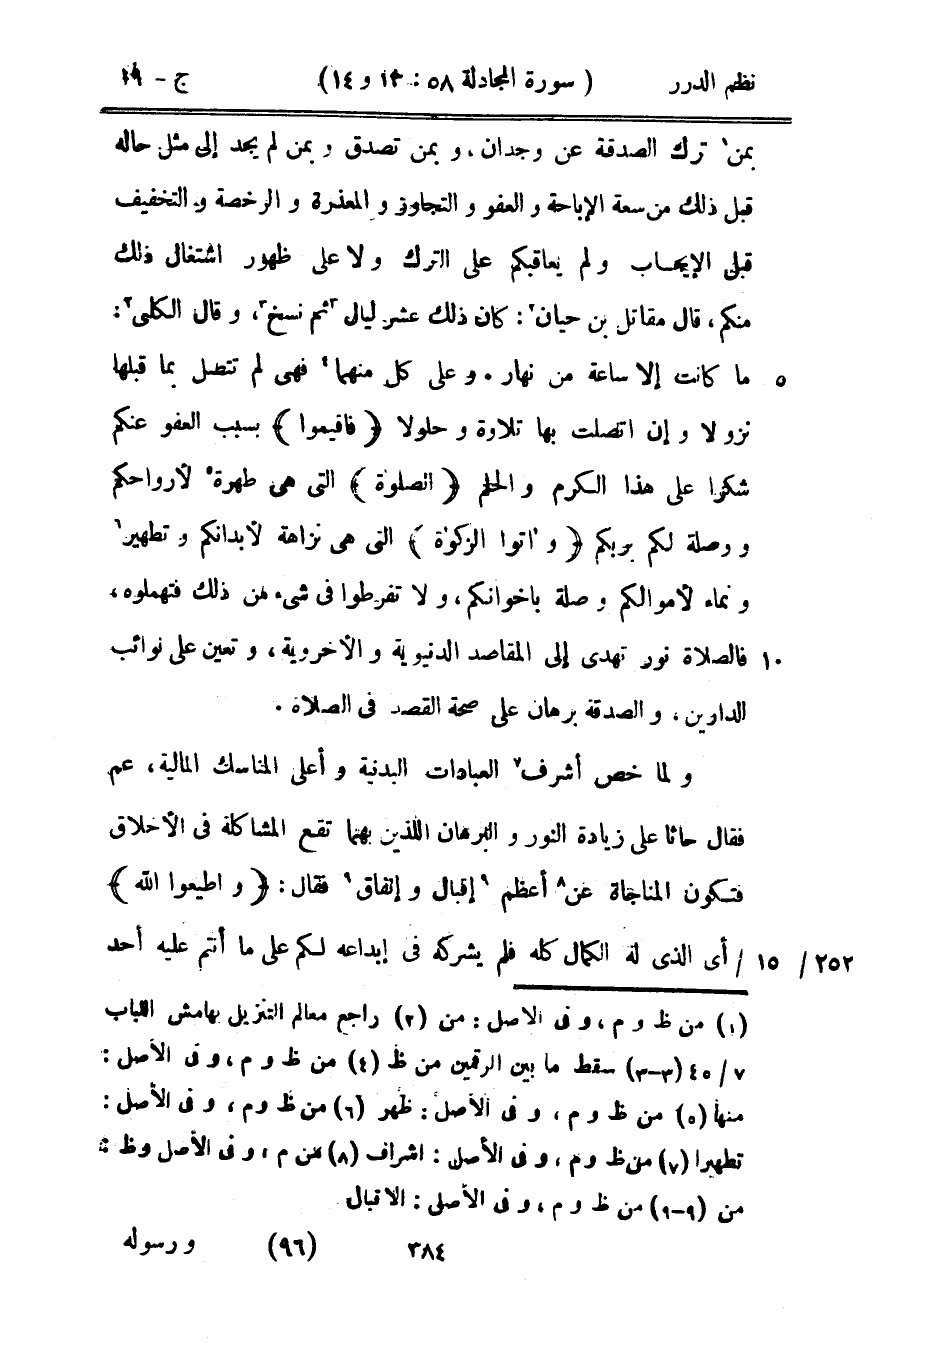 نظم الدرر ( سورة المجادلة ٥٨ : ١٣ و ١٤ ) ج - ١٩
بمن ١ ترك الصدقة عن وجدان، و بمن تصدق و بمن لم يجد إلى مثل حاله
قبل ذلك من سعة الإباحة و العفو و التجاوز و المعذرة و الرخصة و التخفيف
قبل الإيجاب و لم يعاقبكم على الترك و لا على ظهور اشتغال ذلك
منكم، قال مقاتل بن حيان ٢: كان ذلك عشر ليال ٣ ثم نسخ ٣، و قال الكلبى ٢:
٥ ما كانت إلا ساعة من نهار . و على كل منهما ٤ فهى لم تتصل بما قبلها
نزولا و إن اتصلت بها تلاوة و حلولا ﴿ فاقيموا ﴾ بسبب العفو عنكم
شكرا على هذا الكرم و الحلم ﴿ الصلوٰة ﴾ التى هى طهرة ٥ لأرواحكم
و وصلة لكم بربكم ﴿ و اٰتوا الزكوٰة ﴾ التى هى نزاهة لأبدانكم و تطهير ٦
و نماء لأموالكم و صلة باخوانكم، و لا تفرطوا فى شىء من ذلك فتهملوه،
١٠ فالصلاة نور تهدى إلى المقاصد الدنيوية و الأخروية، و تعين على نوائب
الدارين، و الصدقة برهان على صحة القصد فى الصلاة .
و لما خص أشرف ٧ العبادات البدنية و أعلى المناسك المالية، عم
فقال حاثا على زيادة النور و البرهان اللذين بهما تقع المشاكلة فى الأخلاق
فتكون المناجاة عن ٨ أعظم ٩ إقبال و إنفاق ٩ فقال: ﴿ و اطيعوا الله ﴾
٢٥٢ / ١٥ / أى الذى له الكمال كله فلم يشركه فى إبداعه لكم على ما أنتم عليه أحد
(١) من ظ و م، و فى الاصل : من (٢) راجع معالم التنزيل بهامش اللباب
٧ / ٤٥ (٣-٣) سقط ما بين الرقمين من ظ (٤) من ظ و م، و فى الأصل :
منها (٥) من ظ و م، و فى الأصل : ظهر (٦) من ظ و م، و فى الأصل :
تطهيرا (٧) من ظ و م، و فى الأصل : اشراف (٨) من م، و فى الأصل و ظ :
من (٩-٩) من ظ و م، و فى الأصل : الاقبال
٣٨٤ (٩٦) و رسوله